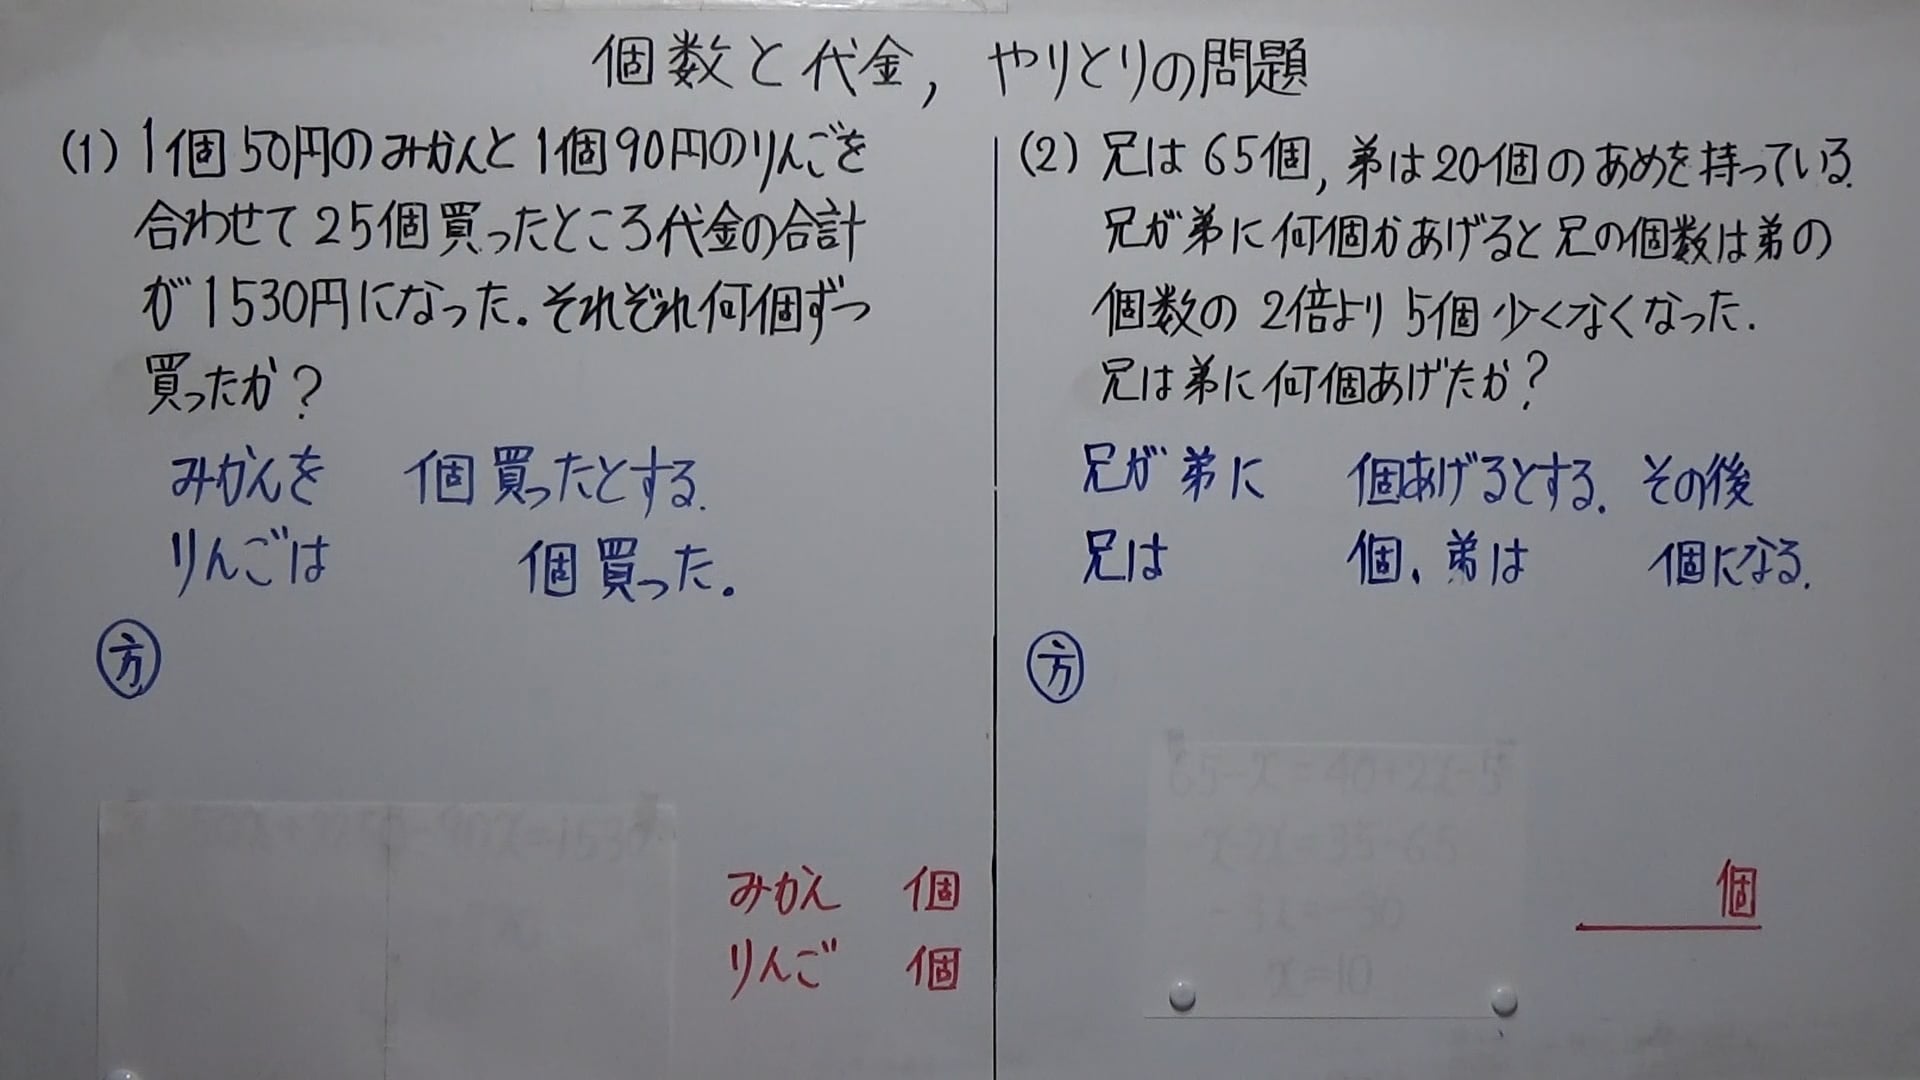 個数と代金, やりとりの問題
(1) 1個50円のみかんと1個90円のりんごを
合わせて25個買ったところ代金の合計
が1530円になった. それぞれ何個ずつ
買ったか?
みかんを 個買ったとする.
りんごは 個買った.
方
みかん 個
りんご 個
(2) 兄は65個, 弟は20個のあめを持っている.
兄が弟に何個かあげると兄の個数は弟の
個数の2倍より5個少くなくなった.
兄は弟に何個あげたか?
兄が弟に 個あげるとする. その後
兄は 個、弟は 個になる.
方
65-x=40+2x-5
x=10
個